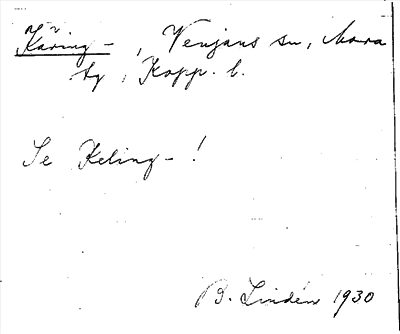 Käring- , Venjans sn, Mora
tg, Kopp. l.
Se Keling- !
B. Lindén 1930